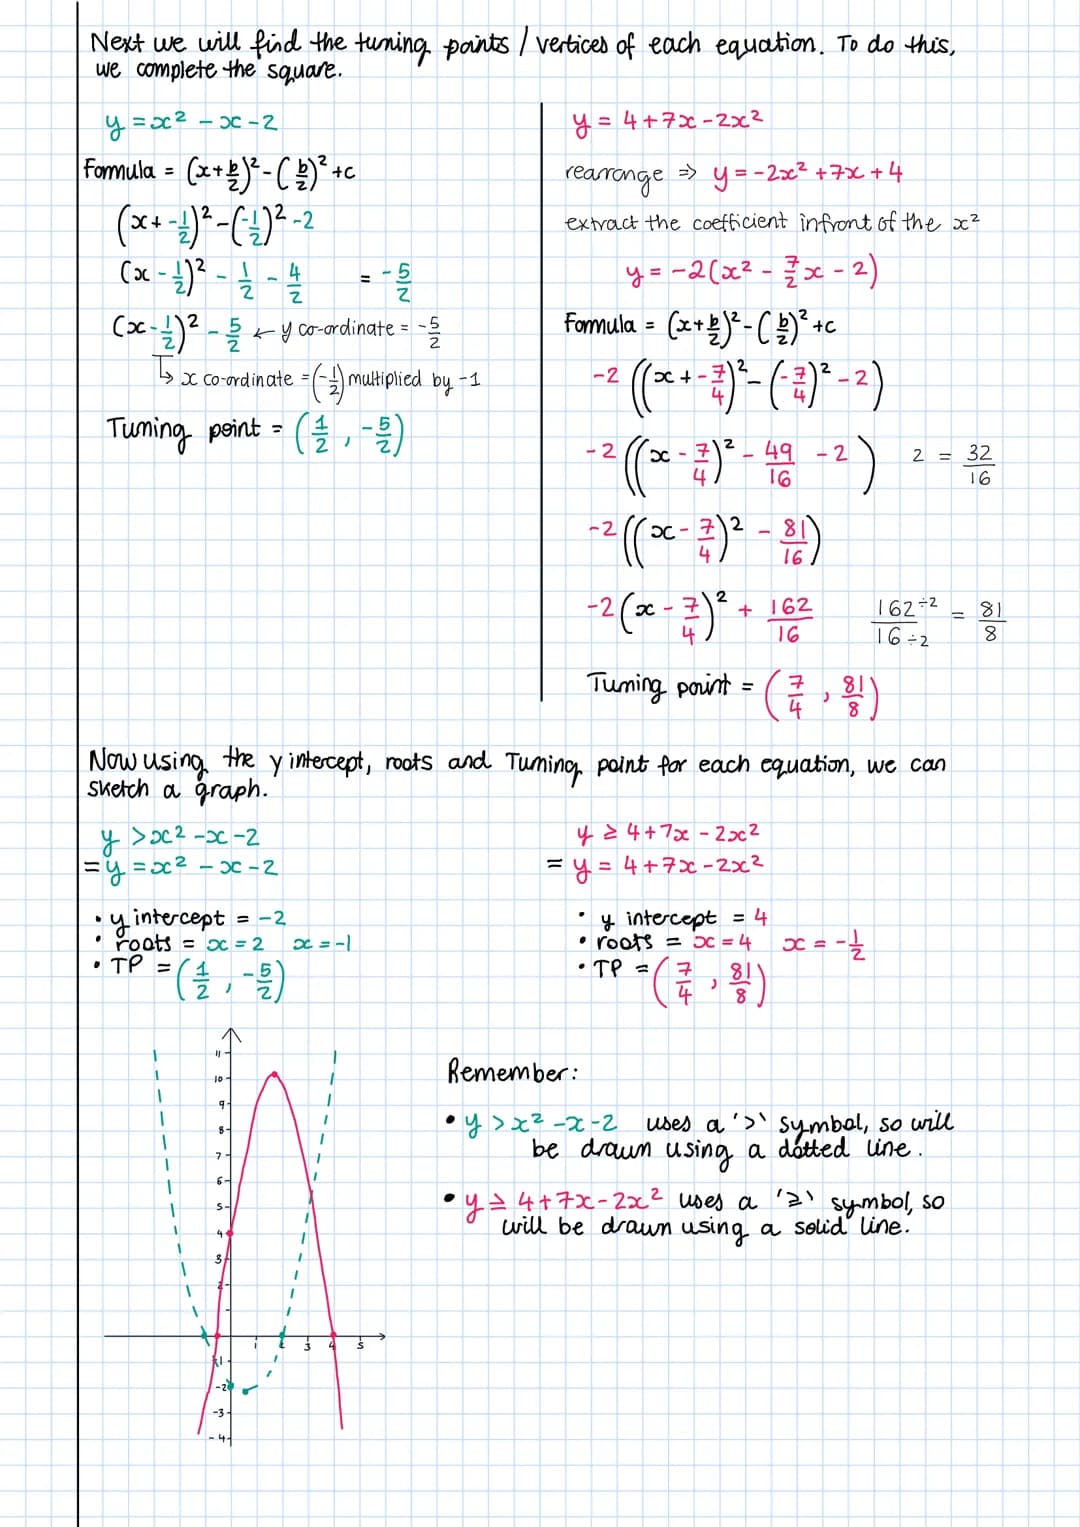 Next we will find the turning points / vertices of each equation. To do this,
we complete the square.
y = x² - x - 2
Formula = (x + b/2)² - (b/2)² + c
(x + -1/2)² - (-1/2)² - 2
(x - 1/2)² - 1/2 - 4/2 = -5/2
(x - 1/2)² - 5/2 ← y co-ordinate = -5/2
↳ x co-ordinate = (-1/2) multiplied by -1
Turning point = (1/2, -5/2)
y = 4 + 7x - 2x²
rearrange ⇒ y = -2x² + 7x + 4
extract the coefficient infront of the x²
y = -2(x² - 7/2 x - 2)
Formula = (x + b/2)² - (b/2)² + c
-2((x + -7/4)² - (-7/4)² - 2)
-2((x - 7/4)² - 49/16 - 2) 2 = 32/16
-2((x - 7/4)² - 81/16)
-2(x - 7/4)² + 162/16 162÷2/16÷2 = 81/8
Turning point = (7/4, 81/8)
Now using the y intercept, roots and Turning point for each equation, we can
sketch a graph.
y > x² - x - 2
= y = x² - x - 2
• y intercept = -2
• roots = x = 2 x = -1
• TP = (1/2, -5/2)
y ≥ 4 + 7x - 2x²
= y = 4 + 7x - 2x²
• y intercept = 4
• roots = x = 4 x = -1/2
• TP = (7/4, 81/8)
11
10
9
8
7
6
5
4
3
2
1 2 3 4 5
-1
-2
-3
-4
Remember:
• y > x² - x - 2 uses a '>' symbol, so will
be drawn using a dotted line.
• y ≥ 4 + 7x - 2x² uses a '≥' symbol, so
will be drawn using a solid line.